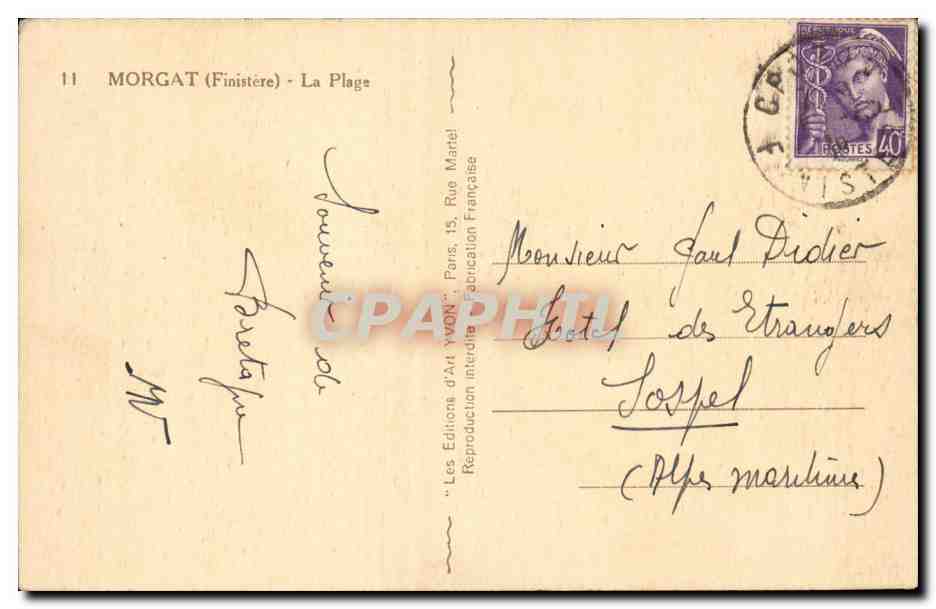 11 MORGAT (Finistère) - La Plage
Souvenir de
Bretagne
"Les Editions d'Art YVON", Paris, 15, Rue Martel
Reproduction interdite - Fabrication Française
CPAPHIL
REPUBLIQUE
POSTES
40
Monsieur Paul Didier
Hotel des Etrangers
Sospel
(Alpes maritimes)